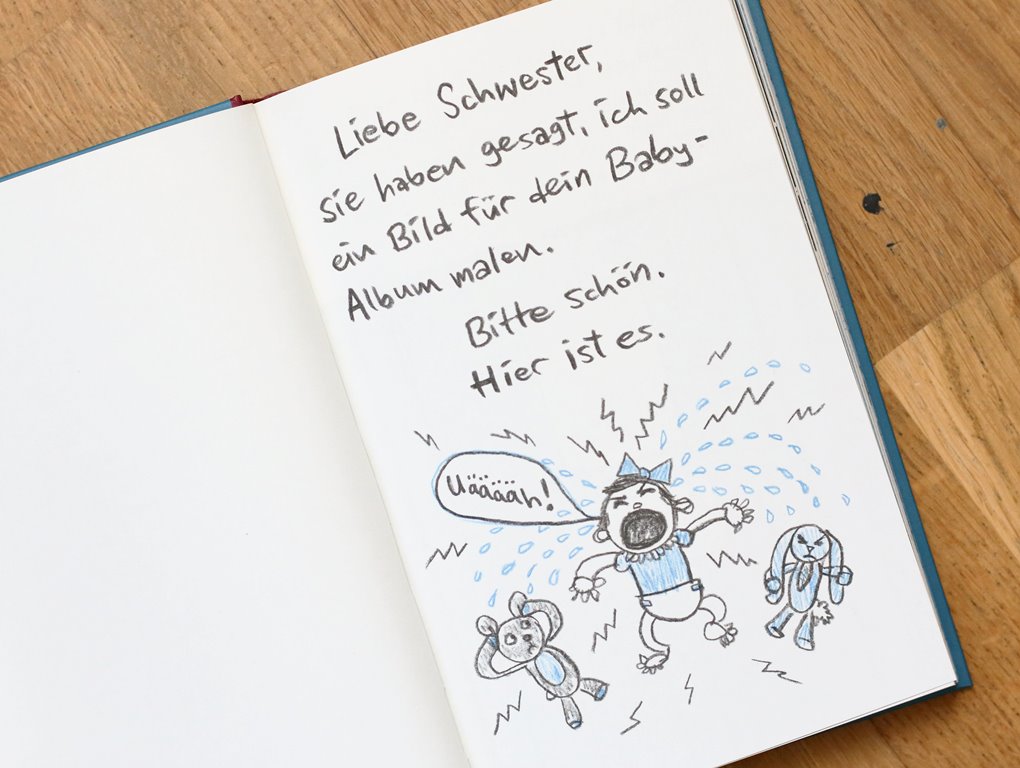 Liebe Schwester,
sie haben gesagt, ich soll
ein Bild für dein Baby-
Album malen.
Bitte schön.
Hier ist es.
Uäääääh!